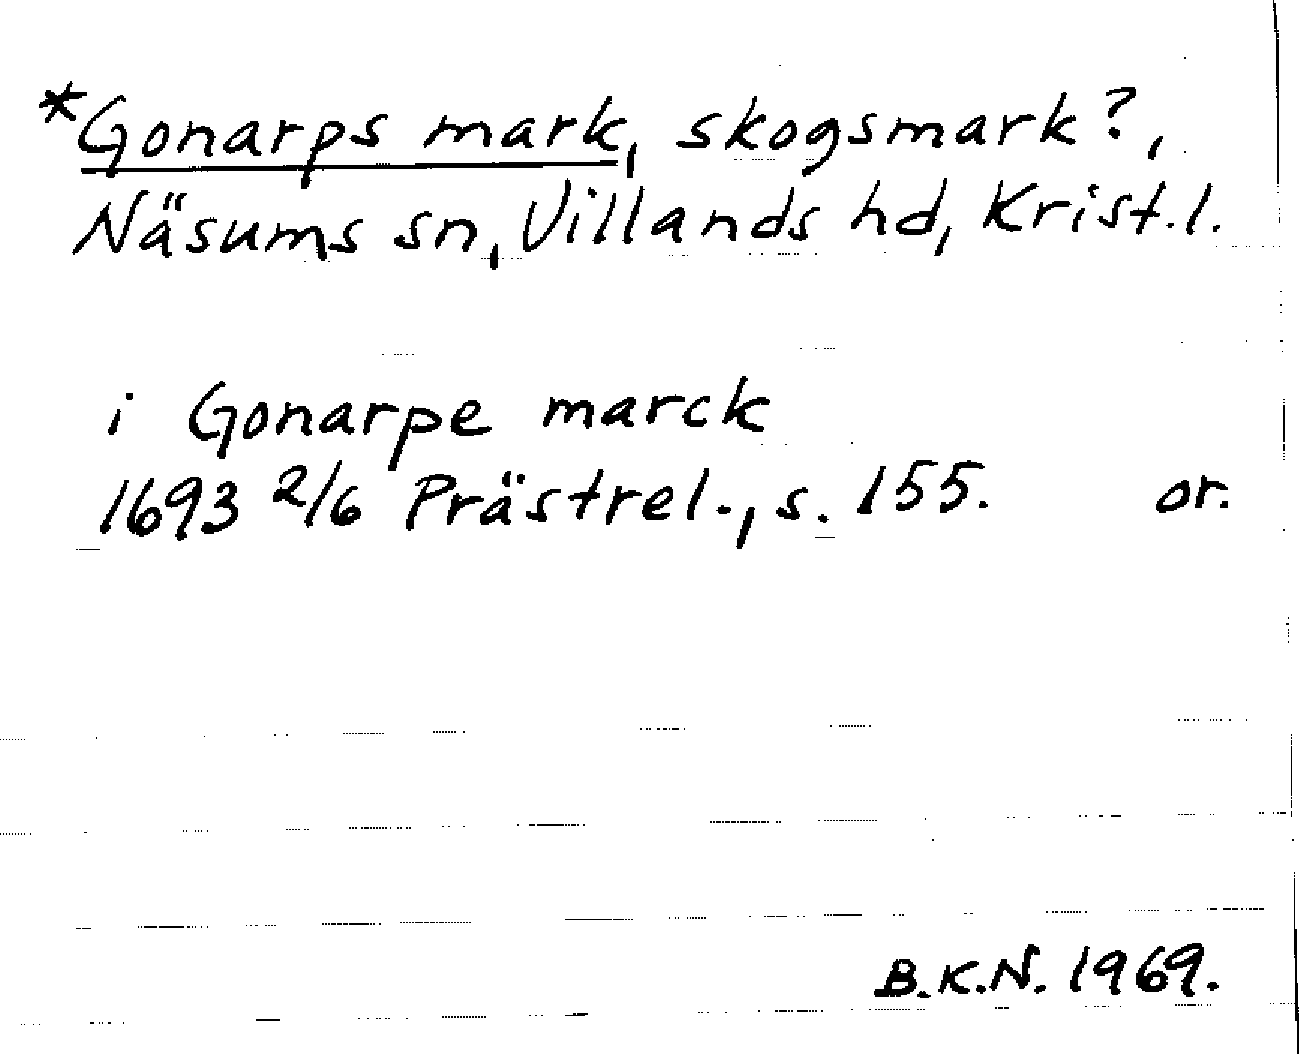 *Gonarps mark, skogsmark?,
Näsums sn, Villands hd, Krist.l.
i Gonarpe marck
1693 2/6 Prästrel., s. 155. or.
B.K.N. 1969.